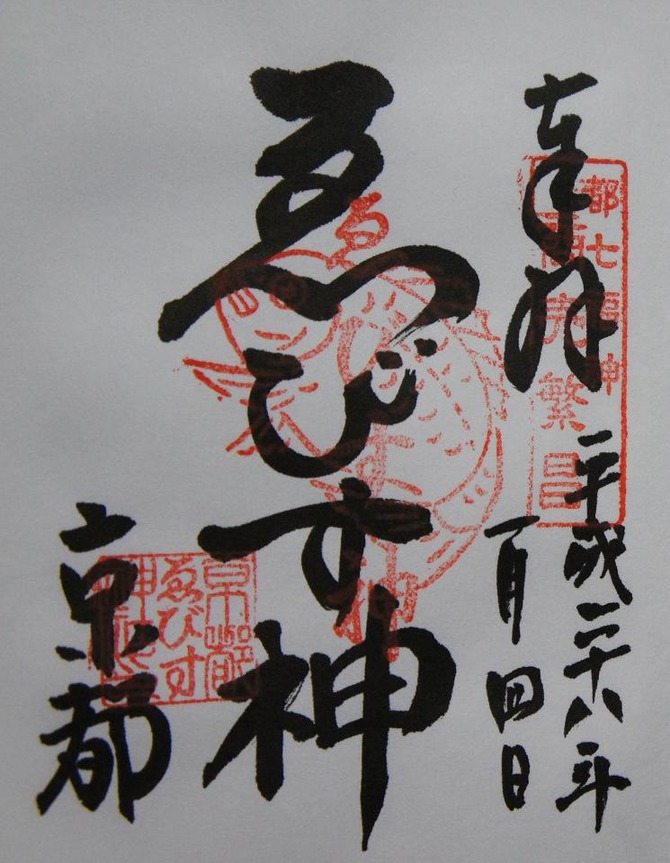 奉拝
平成二十八年
一月四日
都七福神
商売繁昌
ゑびす神
ゑびす神
京都
京都
ゑびす